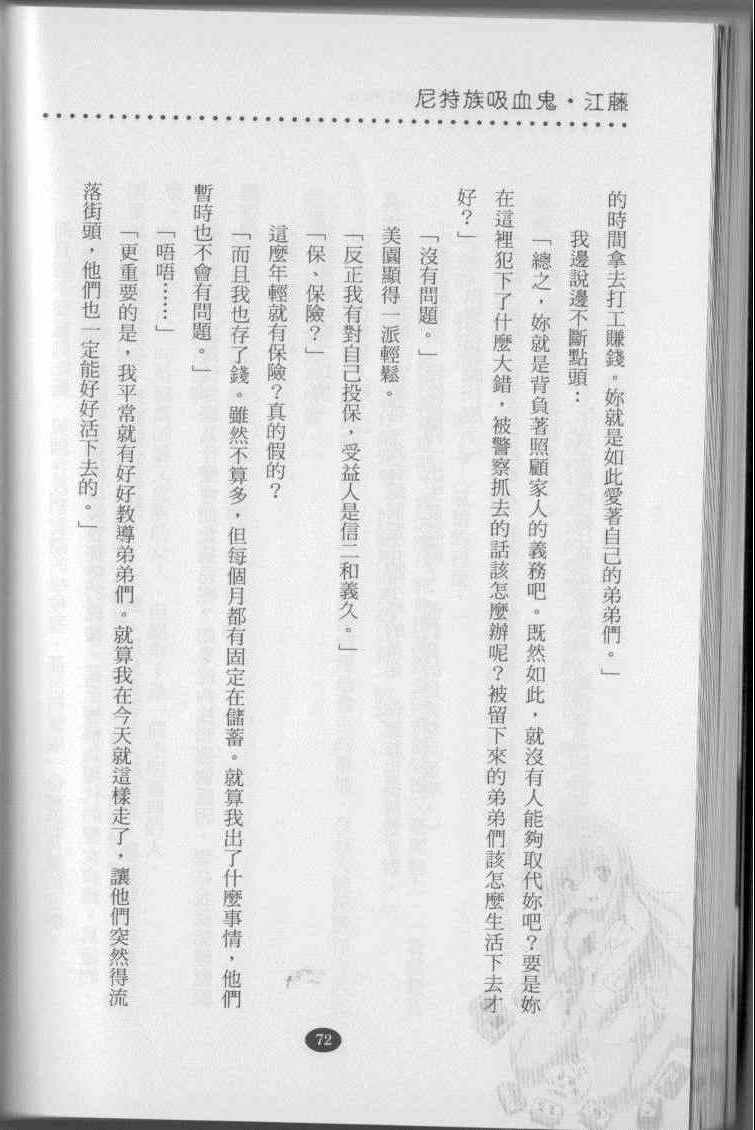 尼特族吸血鬼・江藤
的時間拿去打工賺錢。妳就是如此愛著自己的弟弟們。」
我邊說邊不斷點頭：
「總之，妳就是背負著照顧家人的義務吧。既然如此，就沒有人能夠取代妳吧？要是妳
在這裡犯下了什麼大錯，被警察抓去的話該怎麼辦呢？被留下來的弟弟們該怎麼生活下去才
好？」
「沒有問題。」
美園顯得一派輕鬆。
「反正我有對自己投保，受益人是信二和義久。」
「保、保險？」
這麼年輕就有保險？真的假的？
「而且我也存了錢。雖然不算多，但每個月都有固定在儲蓄。就算我出了什麼事情，他們
暫時也不會有問題。」
「唔唔……」
「更重要的是，我平常就有好好教導弟弟們。就算我在今天就這樣走了，讓他們突然得流
落街頭，他們也一定能好好活下去的。」
72